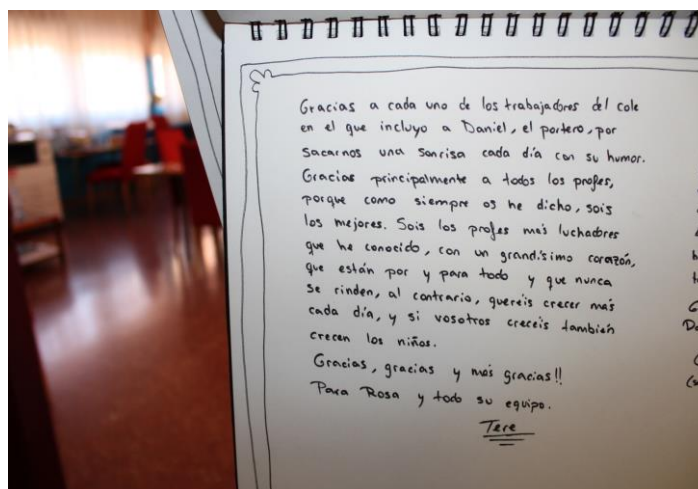 Gracias a cada uno de los trabajadores del cole
en el que incluyo a Daniel, el portero, por
sacarnos una sonrisa cada día con su humor.
Gracias principalmente a todos los profes,
porque como siempre os he dicho, sois
los mejores. Sois los profes más luchadores
que he conocido, con un grandísimo corazón,
que están por y para todo y que nunca
se rinden, al contrario, queréis crecer más
cada día, y si vosotros creceis también
crecen los niños.
Gracias, gracias y más gracias!!
Para Rosa y todo su equipo.
Tere